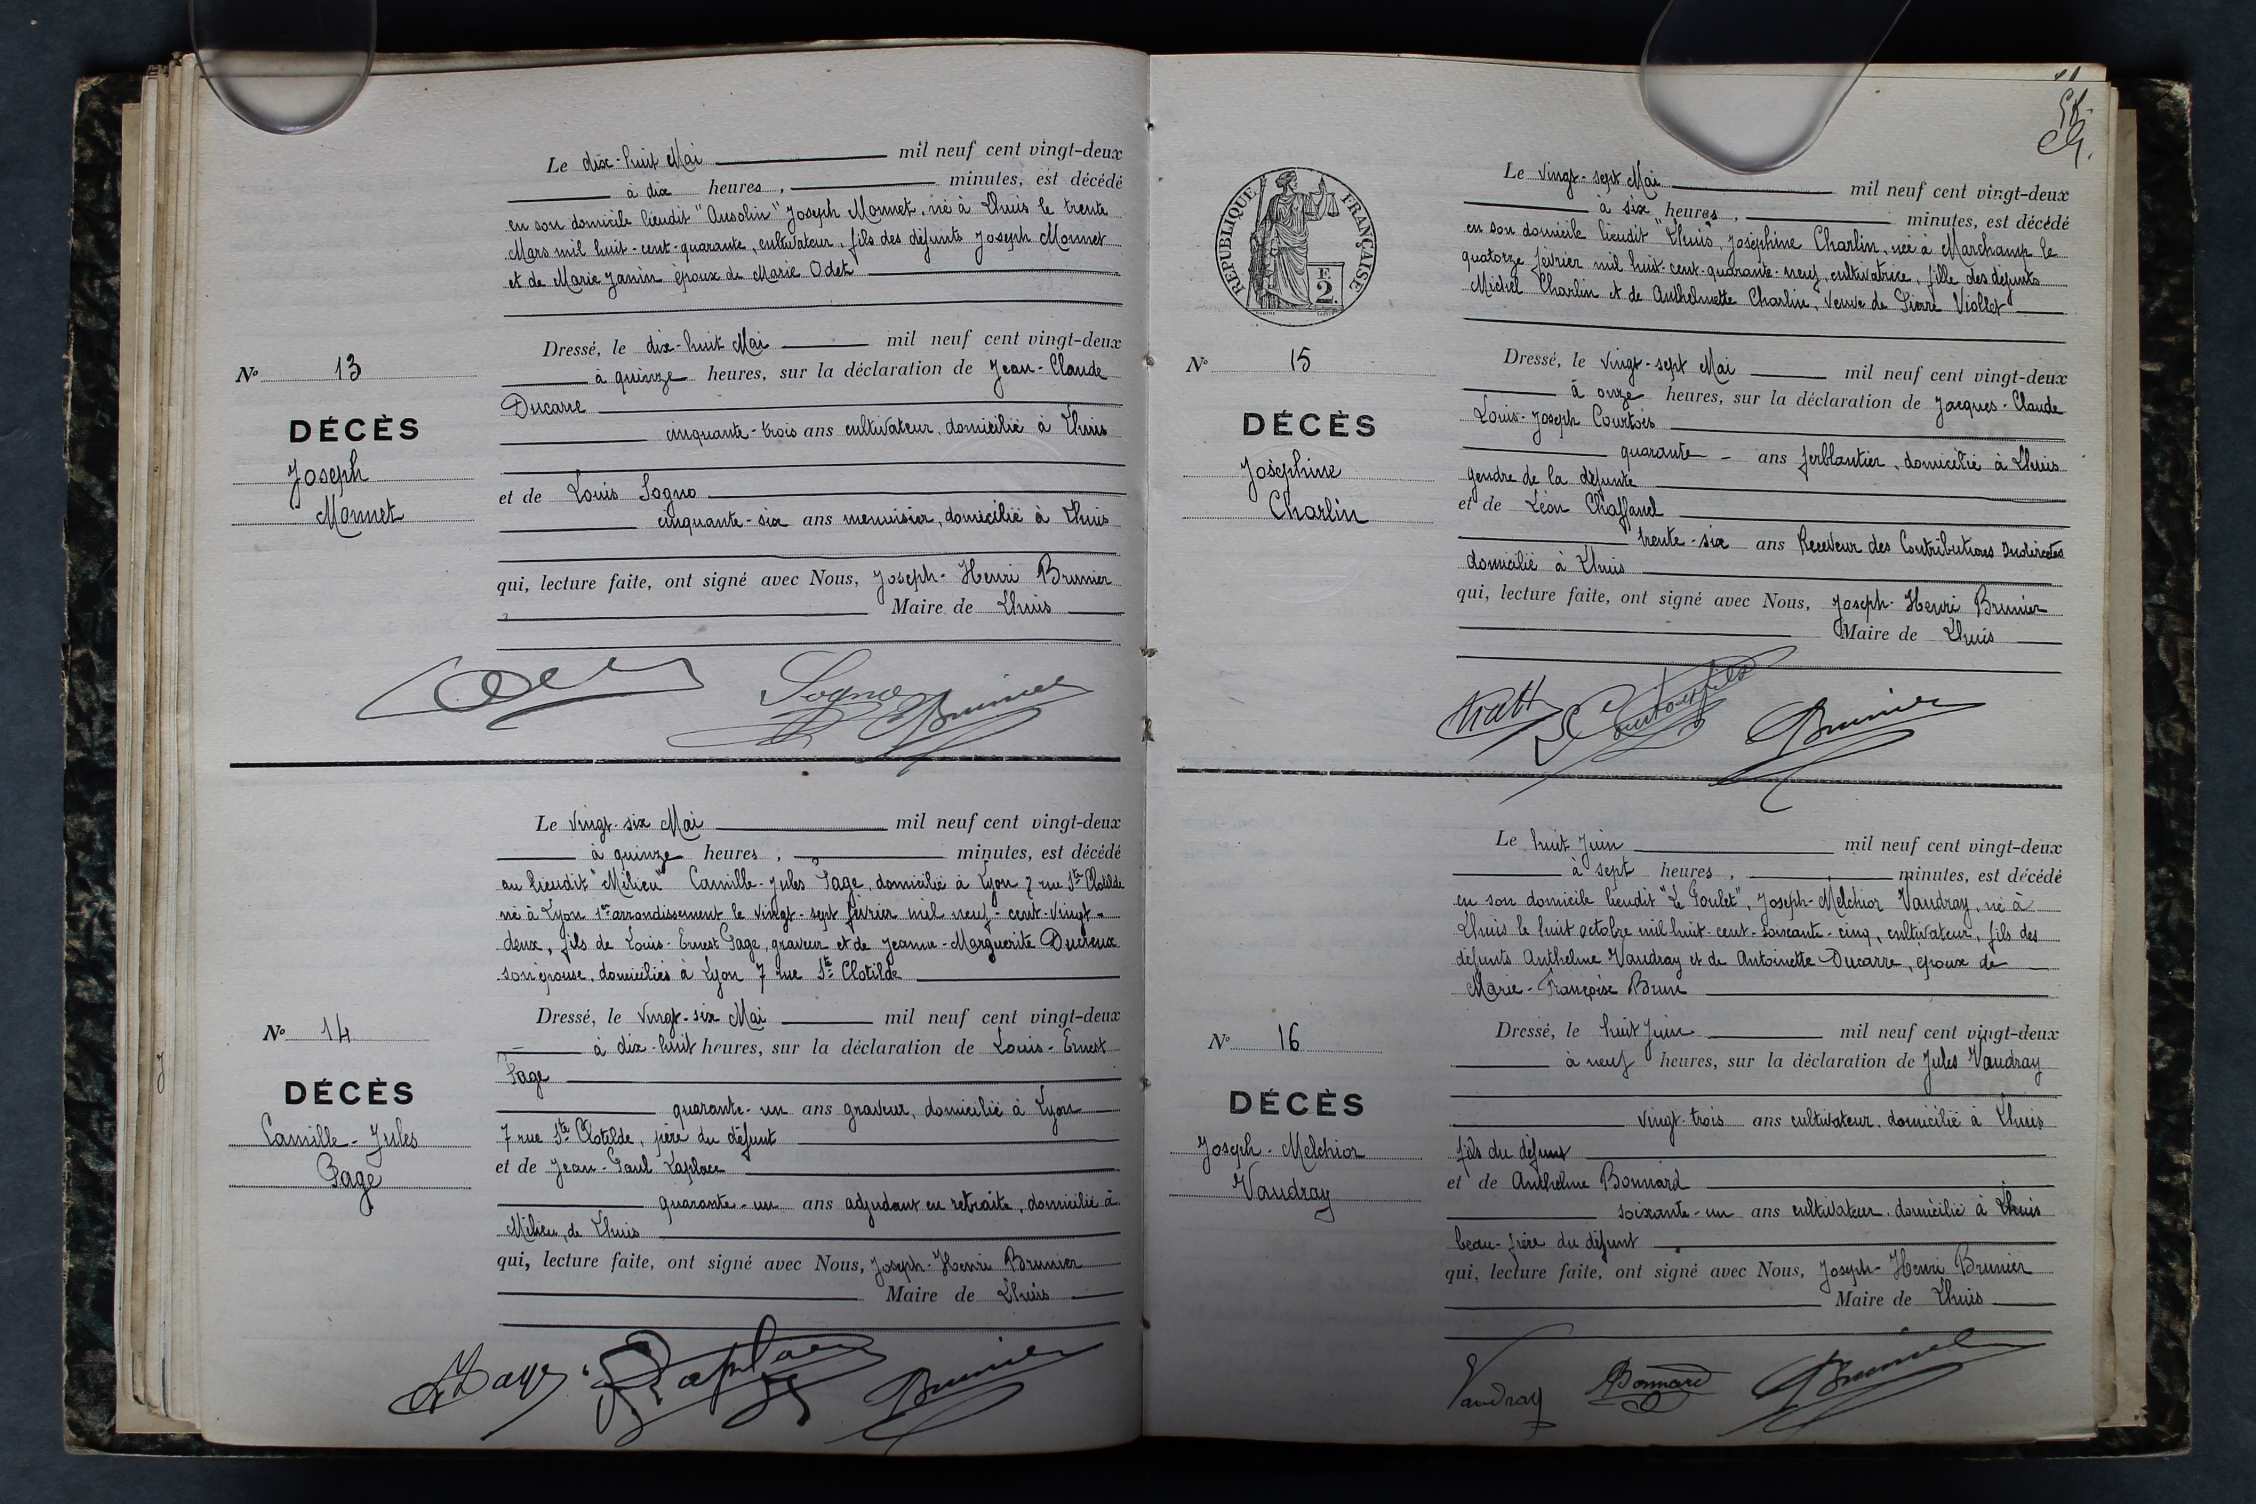 Le dix-huit Mai mil neuf cent vingt-deux
à dix heures, minutes, est décédé
en son domicile lieudit "Ansolin" Joseph Monnet, né à Lhuis le trente
Mars mil huit-cent-quarante, cultivateur, fils des défunts Joseph Monnet
et de Marie Janin époux de Marie Odet
Nº 13
DÉCÈS
Joseph
Monnet
Dressé, le dix-huit Mai mil neuf cent vingt-deux
à quinze heures, sur la déclaration de Jean-Claude
Ducarre
cinquante-trois ans cultivateur, domicilié à Lhuis
et de Louis Sogno
cinquante-six ans menuisier, domicilié à Lhuis
qui, lecture faite, ont signé avec Nous, Joseph-Henri Brunier
Maire de Lhuis
Sogno
Brunier
Le vingt-six Mai mil neuf cent vingt-deux
à quinze heures, minutes, est décédé
au lieudit "Milieu" Camille-Jules Page, domicilié à Lyon 7 rue Ste Clotilde
né à Lyon 1er arrondissement le vingt-sept février mil neuf-cent-vingt-
deux, fils de Louis-Ernest Page, graveur et de Jeanne-Marguerite Ducreux
son épouse, domiciliés à Lyon 7 rue Ste Clotilde
Nº 14
DÉCÈS
Camille-Jules
Page
Dressé, le vingt-six Mai mil neuf cent vingt-deux
à dix-huit heures, sur la déclaration de Louis-Ernest
Page
quarante-un ans graveur, domicilié à Lyon
7 rue Ste Clotilde, père du défunt
et de Jean-Paul Laplace
quarante-un ans adjudant en retraite, domicilié à
Milieu, de Lhuis
qui, lecture faite, ont signé avec Nous, Joseph-Henri Brunier
Maire de Lhuis
Laplace
Brunier
RÉPUBLIQUE FRANÇAISE
F
2.
Le vingt-sept Mai mil neuf cent vingt-deux
à six heures, minutes, est décédé
en son domicile lieudit "Lhuis" Joséphine Charlin, née à Marchamp le
quatorze février mil huit-cent-quarante-neuf, cultivatrice, fille des défunts
Michel Charlin et de Anthelmette Charlin, Veuve de Pierre Viollet
Nº 15
DÉCÈS
Joséphine
Charlin
Dressé, le vingt-sept Mai mil neuf cent vingt-deux
à onze heures, sur la déclaration de Jacques-Claude
Louis-Joseph Courtois
quarante - ans ferblantier, domicilié à Lhuis
gendre de la défunte
et de Léon Chaffanel
trente-six ans Receveur des Contributions Indirectes
domicilié à Lhuis
qui, lecture faite, ont signé avec Nous, Joseph-Henri Brunier
Maire de Lhuis
Courtois fils
Brunier
Le huit Juin mil neuf cent vingt-deux
à sept heures, minutes, est décédé
en son domicile lieudit "Le Poulet", Joseph-Melchior Vaudray, né à
Lhuis le huit octobre mil huit-cent-soixante-cinq, cultivateur, fils des
défunts Anthelme Vaudray et de Antoinette Ducarre, époux de
Marie-Françoise Brun
Nº 16
DÉCÈS
Joseph-Melchior
Vaudray
Dressé, le huit Juin mil neuf cent vingt-deux
à neuf heures, sur la déclaration de Jules Vaudray
vingt-trois ans cultivateur, domicilié à Lhuis
fils du défunt
et de Anthelme Bonnard
soixante-un ans cultivateur, domicilié à Lhuis
beau-frère du défunt
qui, lecture faite, ont signé avec Nous, Joseph-Henri Brunier
Maire de Lhuis
Vaudray
Bonnard
Brunier